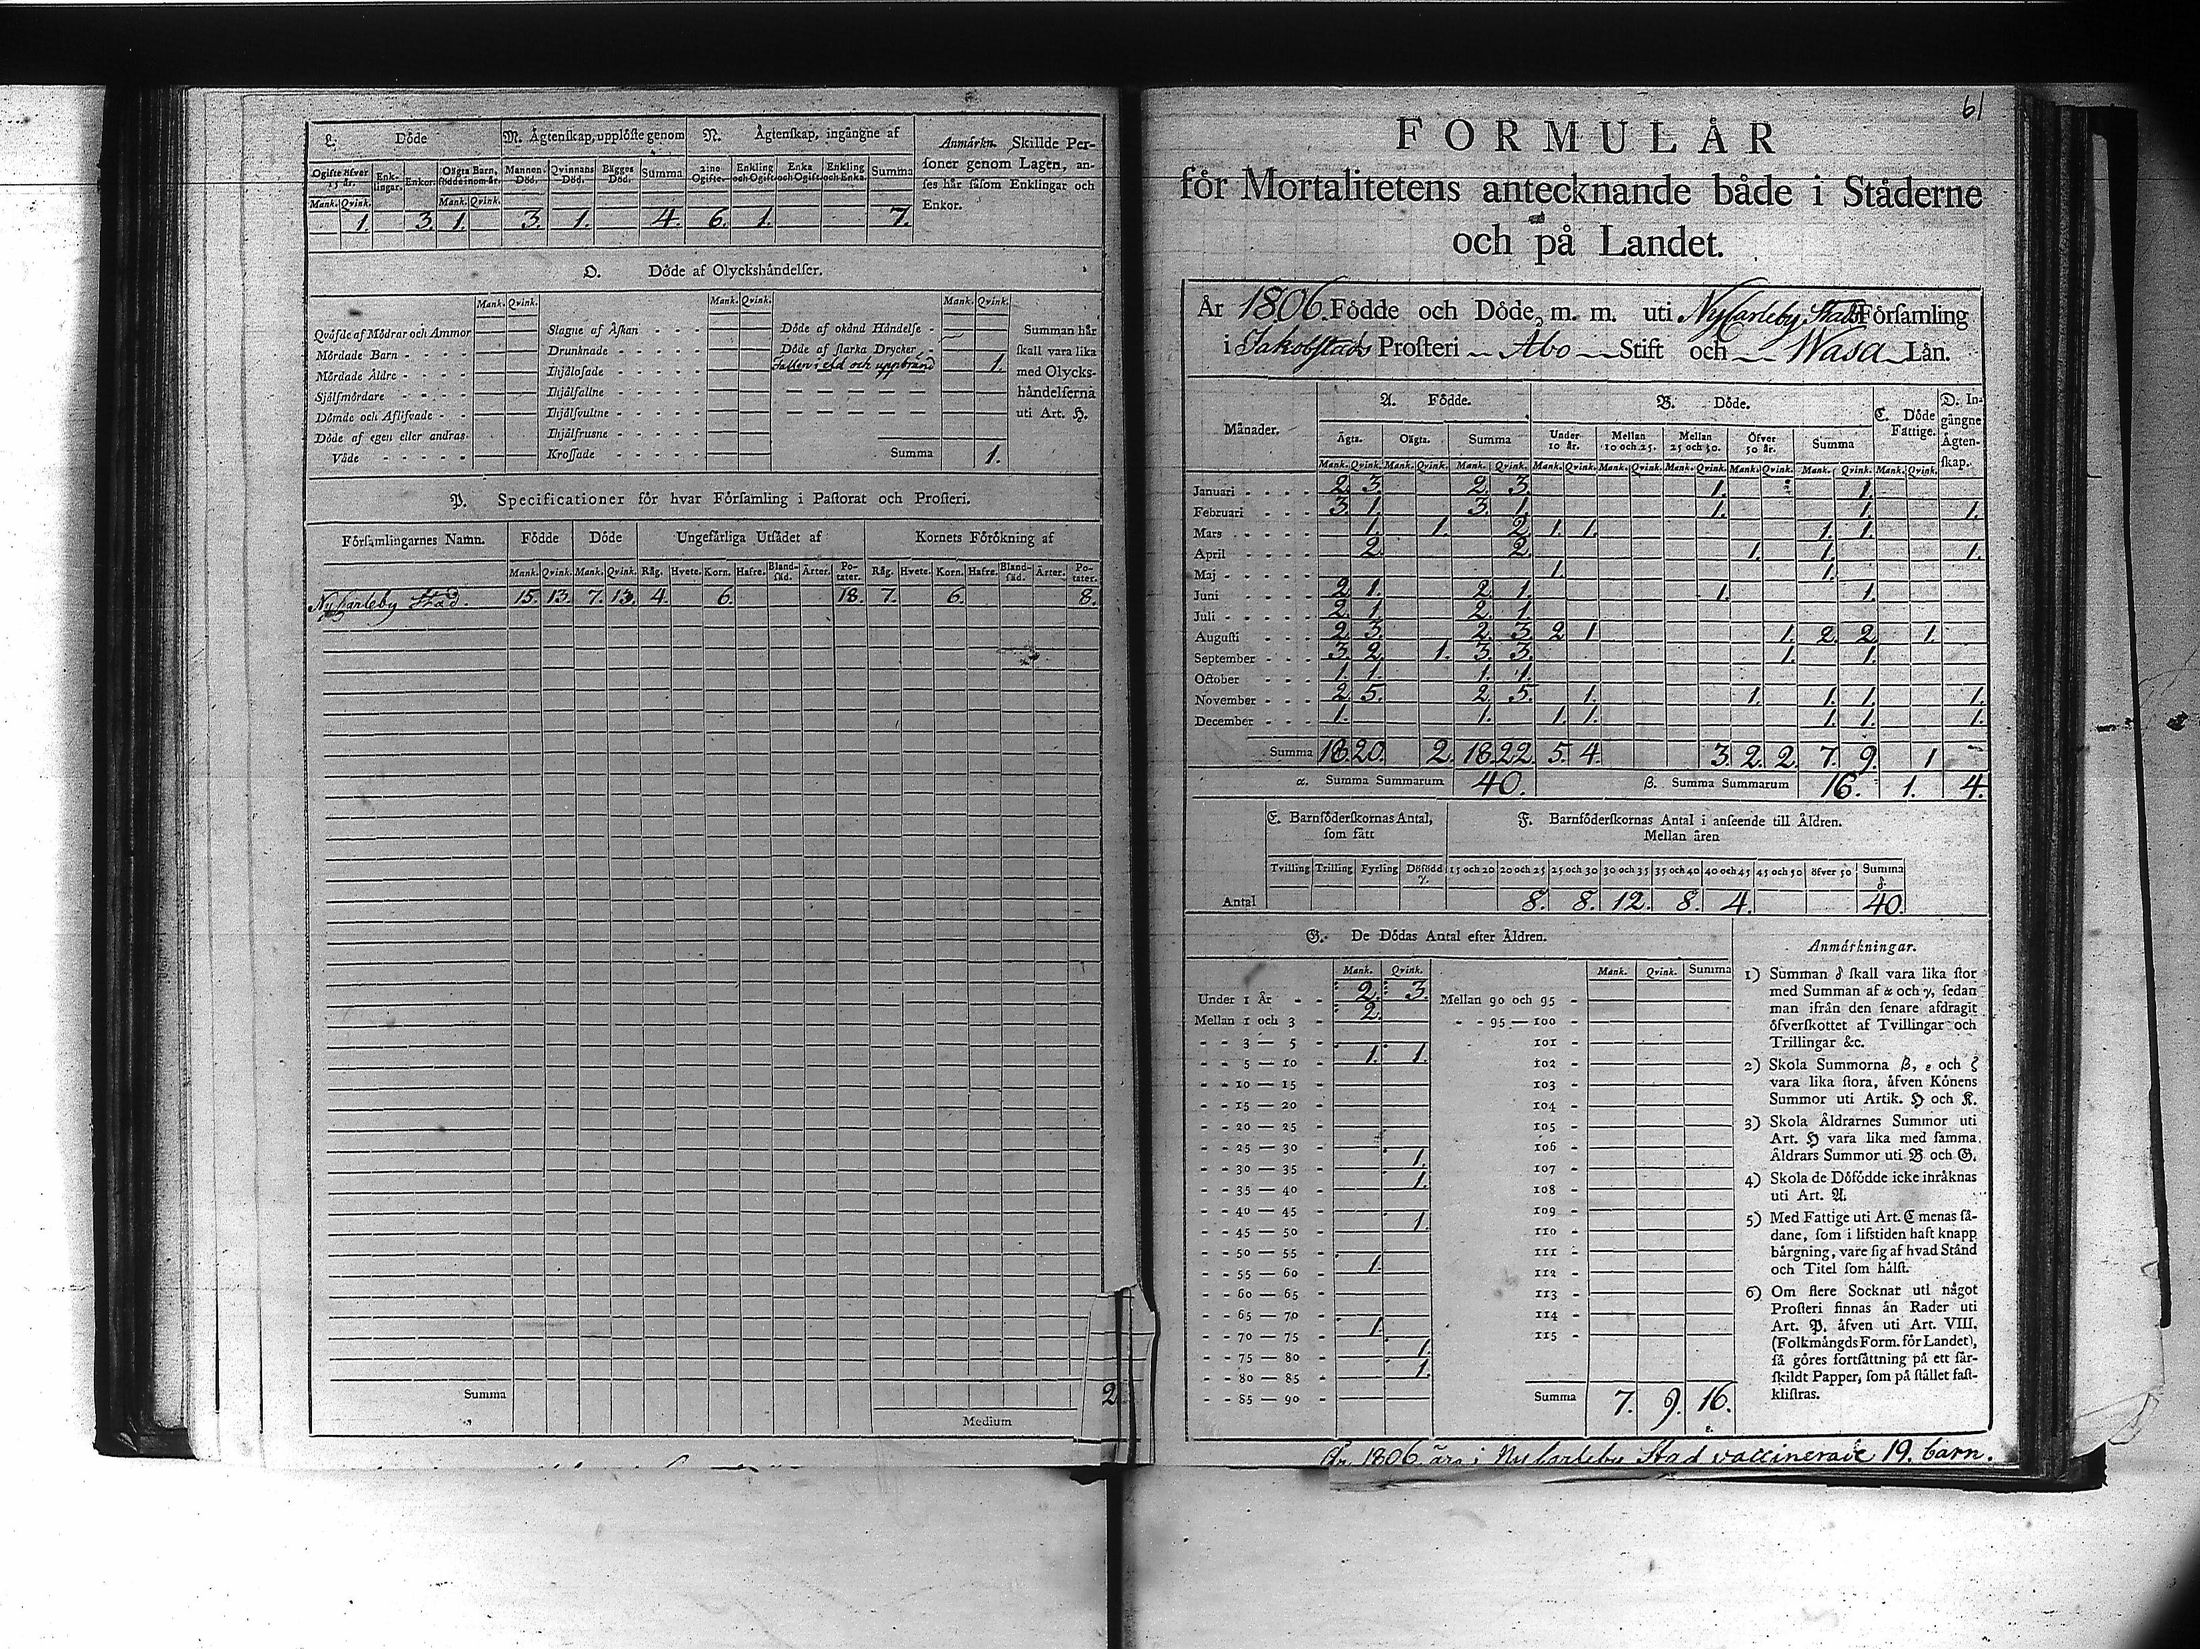 L. Döde
M. Ägtenskap, upplöste genom
N. Ägtenskap, ingångne af
Ogifte öfver 15 år. Enklingar. Enkor. Oägta Barn, födde inom år. Mannens Död. Qvinnans Död. Bägges Död. Summa 2:ne Ogifte. Enkling och Ogift. Enka och Ogift. Enkling och Enka. Summa
Mank. Qvink. Mank. Qvink.
1. 3. 1. 3. 1. 4. 6. 1. 7.
Anmärkn. Skillde Per-
soner genom Lagen, an-
ses här såsom Enklingar och
Enkor.
O. Döde af Olyckshändelser.
Mank. Qvink. Mank. Qvink. Mank. Qvink.
Qväfde af Mödrar och Ammor
Mördade Barn
Mördade Äldre
Sjelfmördare
Dömde och Aflifvade
Döde af egen eller andras
Våde
Slagne af Åskan
Drunknade
Ihjälosade
Ihjälfallne
Ihjälsvultne
Ihjälfrusne
Krossade
Döde af okänd Händelse
Döde af starka Drycker
Fallen i eld och uppbränd 1.
Summa 1.
Summan här
skall vara lika
med Olycks-
händelserna
uti Art. H.
P. Specificationer för hvar Församling i Pastorat och Prosteri.
Församlingarnes Namn. Födde Döde Ungefärliga Utsädet af Kornets Förökning af
Mank. Qvink. Mank. Qvink. Råg. Hvete. Korn. Hafre. Bland-säd. Ärter. Po-tater. Råg. Hvete. Korn. Hafre. Bland-säd. Ärter. Po-tater.
Nycarleby Stad. 15. 13. 7. 13. 4. 6. 18. 7. 6. 8.
Summa
Medium
2
61
FORMULÄR
för Mortalitetens antecknande både i Städerne
och på Landet.
År 1806. Födde och Döde, m. m. uti Nycarleby Stads Församling
i Jakobstads Prosteri Åbo Stift och Wasa Län.
Månader.
A. Födde. B. Döde. C. Döde Fattige. D. In-gångne Ägten-skap.
Ägta. Oägta. Summa Under 10 år. Mellan 10 och 25. Mellan 25 och 50. Öfver 50 år. Summa
Mank. Qvink. Mank. Qvink. Mank. Qvink. Mank. Qvink. Mank. Qvink. Mank. Qvink. Mank. Qvink. Mank. Qvink. Mank. Qvink.
Januari 2. 3. 2. 3. 1. 1.
Februari 3. 1. 3. 1. 1. 1. 1.
Mars 1. 1. 2. 1. 1. 1. 1.
April 2. 2. 1. 1. 1.
Maj 1. 1.
Juni 2. 1. 2. 1. 1. 1.
Juli 2. 1 2. 1
Augusti 2. 3. 2. 3. 2. 1 1. 2. 2. 1.
September 3. 2. 1. 3. 3. 1. 1.
October 1. 1. 1. 1.
November 2 5. 2 5. 1. 1. 1. 1. 1.
December 1. 1. 1. 1. 1. 1. 1.
Summa 18. 20. 2. 18. 22. 5. 4. 3. 2. 2. 7. 9. 1
α. Summa Summarum 40. β. Summa Summarum 16. 1. 4.
E. Barnföderskornas Antal,
som fått
F. Barnföderskornas Antal i anseende till Åldren.
Mellan åren
Tvilling Trilling Fyrling Dödfödd γ. 15 och 20 20 och 25 25 och 30 30 och 35 35 och 40 40 och 45 45 och 50 öfver 50 Summa δ.
Antal 8. 8. 12. 8. 4. 40.
G. De Dödas Antal efter Åldren.
Mank. Qvink. Mank. Qvink. Summa
Under 1 År 2. 3. Mellan 90 och 95
Mellan 1 och 3 2. 95 — 100
3 — 5 101
5 — 10 1. 1. 102
10 — 15 103
15 — 20 104
20 — 25 105
25 — 30 106
30 — 35 1. 107
35 — 40 1. 108
40 — 45 109
45 — 50 1. 110
50 — 55 111
55 — 60 1. 112
60 — 65 113
65 — 70 114
70 — 75 1. 115
75 — 80 1.
80 — 85 1.
85 — 90 Summa 7. 9. 16.
Anmärkningar.
1) Summan δ skall vara lika stor
med Summan af α och γ, sedan
man ifrån den senare afdragit
öfverskottet af Tvillingar och
Trillingar &c.
2) Skola Summorna β, ε och ζ
vara lika stora, äfven Könens
Summor uti Artik. H och K.
3) Skola Åldrarnes Summor uti
Art. H vara lika med samma
Åldrars Summor uti B och G.
4) Skola de Döfödde icke inräknas
uti Art. A.
5) Med Fattige uti Art. C menas så-
dane, som i lifstiden haft knapp
bärgning, vare sig af hvad Stånd
och Titel som hälst.
6) Om flere Socknar uti något
Prosteri finnas än Rader uti
Art. P. äfven uti Art. VIII.
(Folkmängds Form. för Landet),
så göres fortsättning på ett sär-
skildt Papper, som på stället fast-
klistras.
År 1806 äro i Nycarleby Stad vaccinerade 19. barn.